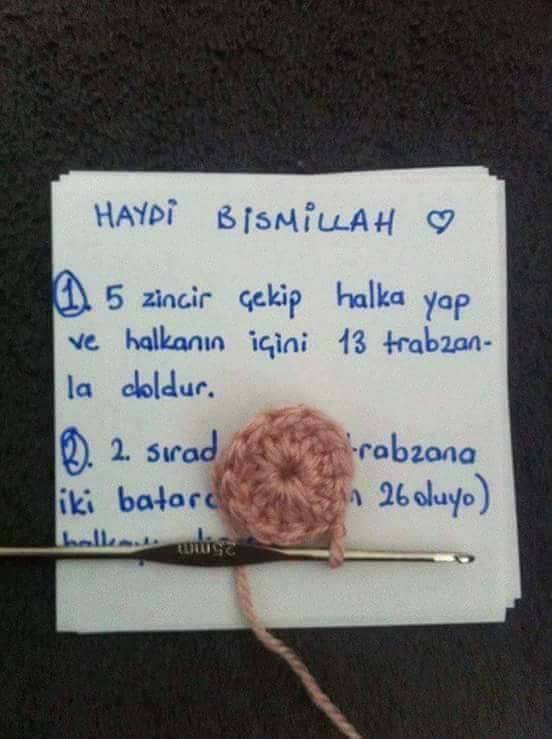 HAYDİ BİSMİLLAH ♡
1. 5 zincir çekip halka yap
ve halkanın içini 13 trabzan-
la doldur.
2. 2. sırad trabzana
iki batar 26 oluyo)
25mm